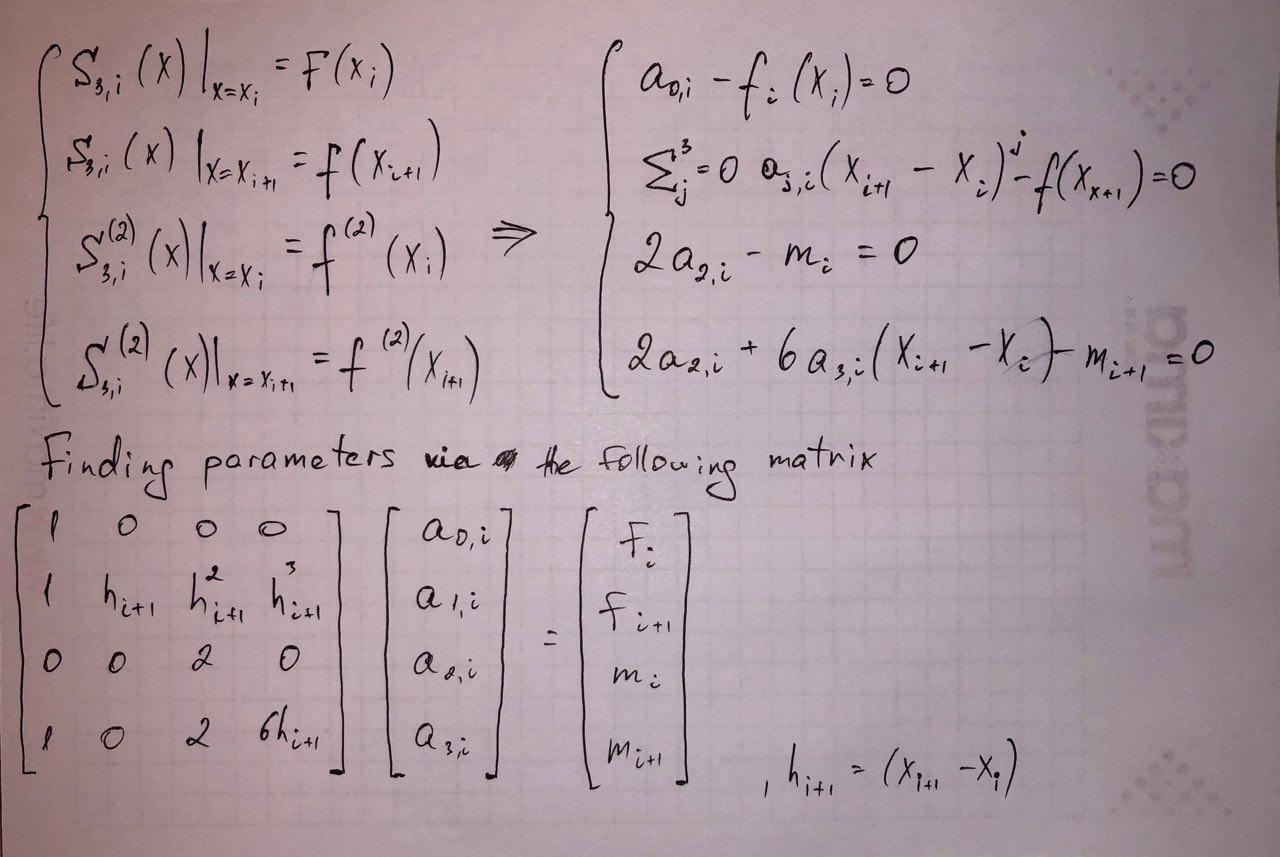 S_{3,i}(x)|_{x=x_i} = F(x_i)
S_{3,i}(x)|_{x=x_{i+1}} = f(x_{i+1})
S_{3,i}^{(2)}(x)|_{x=x_i} = f^{(2)}(x_i)
S_{3,i}^{(2)}(x)|_{x=x_{i+1}} = f^{(2)}(x_{i+1})
⇒
a_{0,i} - f_i(x_i) = 0
∑_j^3 = 0 a_{j,i}(x_{i+1} - x_i)^j - f(x_{x+1}) = 0
2a_{2,i} - m_i = 0
2a_{2,i} + 6a_{3,i}(x_{i+1} - x_i) - m_{i+1} = 0
Finding parameters via the following matrix
[1 0 0 0] [a_{0,i}] [F_i]
[1 h_{i+1} h_{i+1}^2 h_{i+1}^3] [a_{1,i}] [f_{i+1}]
[0 0 2 0] [a_{2,i}] = [m_i]
[1 0 2 6h_{i+1}] [a_{3,i}] [m_{i+1}]
, h_{i+1} = (x_{i+1} - x_i)